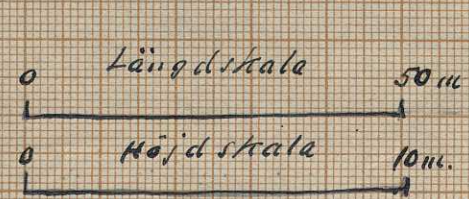 0 Längdskala 50 m
0 Höjdskala 10 m.